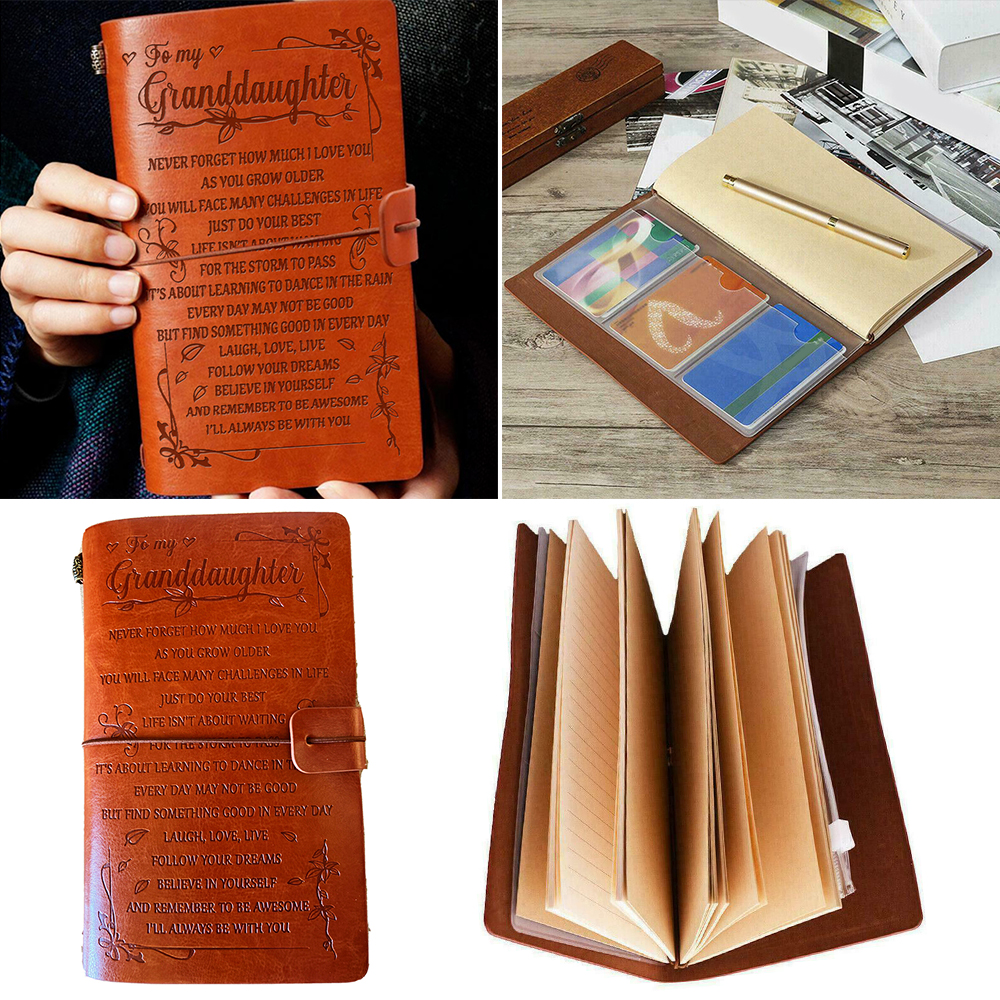 To my
Granddaughter
NEVER FORGET HOW MUCH I LOVE YOU
AS YOU GROW OLDER
YOU WILL FACE MANY CHALLENGES IN LIFE
JUST DO YOUR BEST
LIFE ISN'T ABOUT WAITING
FOR THE STORM TO PASS
IT'S ABOUT LEARNING TO DANCE IN THE RAIN
EVERY DAY MAY NOT BE GOOD
BUT FIND SOMETHING GOOD IN EVERY DAY
LAUGH, LOVE, LIVE
FOLLOW YOUR DREAMS
BELIEVE IN YOURSELF
AND REMEMBER TO BE AWESOME
I'LL ALWAYS BE WITH YOU
To my
Granddaughter
NEVER FORGET HOW MUCH I LOVE YOU
AS YOU GROW OLDER
YOU WILL FACE MANY CHALLENGES IN LIFE
JUST DO YOUR BEST
LIFE ISN'T ABOUT WAITING
FOR THE STORM TO PASS
IT'S ABOUT LEARNING TO DANCE IN
EVERY DAY MAY NOT BE GOOD
BUT FIND SOMETHING GOOD IN EVERY DAY
LAUGH, LOVE, LIVE
FOLLOW YOUR DREAMS
BELIEVE IN YOURSELF
AND REMEMBER TO BE AWESOME
I'LL ALWAYS BE WITH YOU